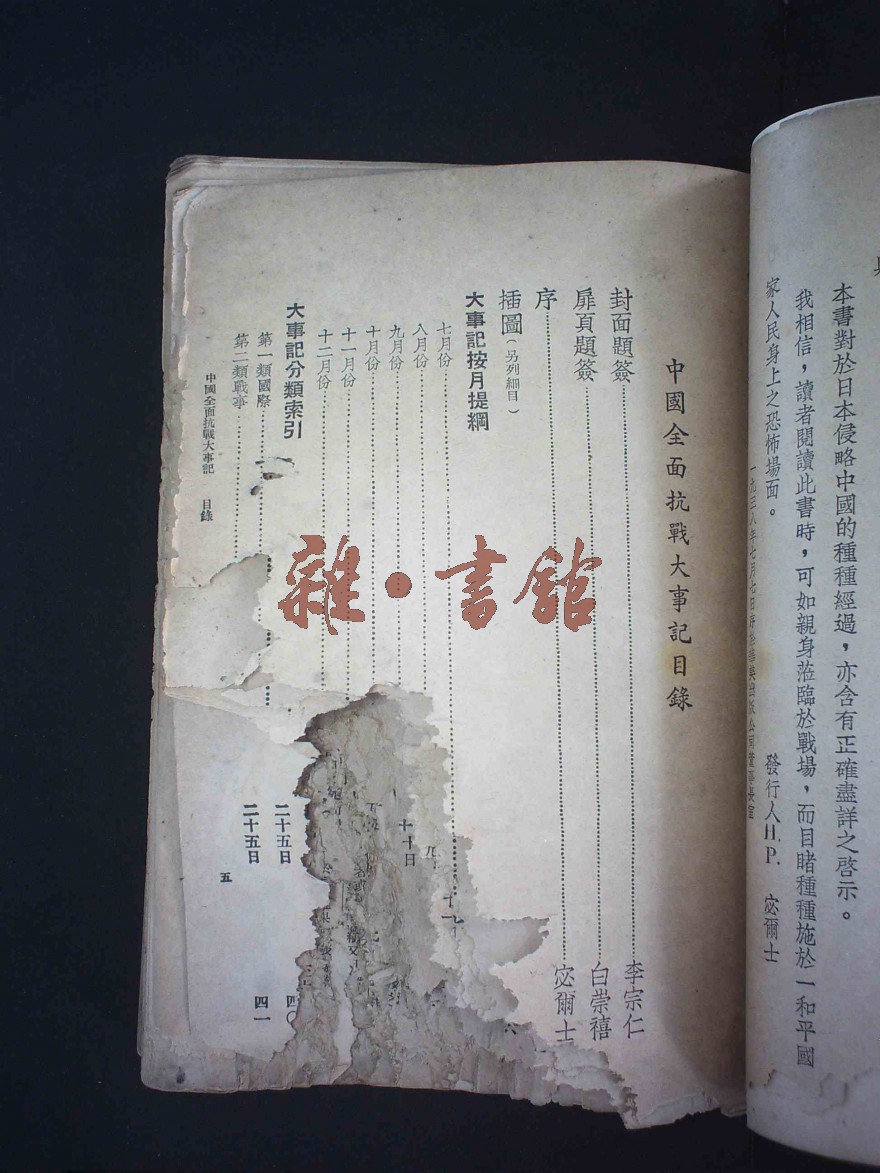 本書對於日本侵略中國的種種經過，亦含有正確盡詳之啓示。
我相信，讀者閱讀此書時，可如親身蒞臨於戰場，而目睹種種施於一和平國
家人民身上之恐怖場面。
發行人H.P. 宓爾士
一九三八年七月七日
中國全面抗戰大事記目錄
封面題簽 李宗仁
扉頁題簽 白崇禧
序 宓爾士
插圖（另列細目） 六
大事記按月提綱
七月份
八月份
九月份
十月份
十一月份
十二月份
大事記分類索引
第一類國際 二十五日 四〇
第二類戰事 二十五日 四一
中國全面抗戰大事記 目錄 五
雜·書館